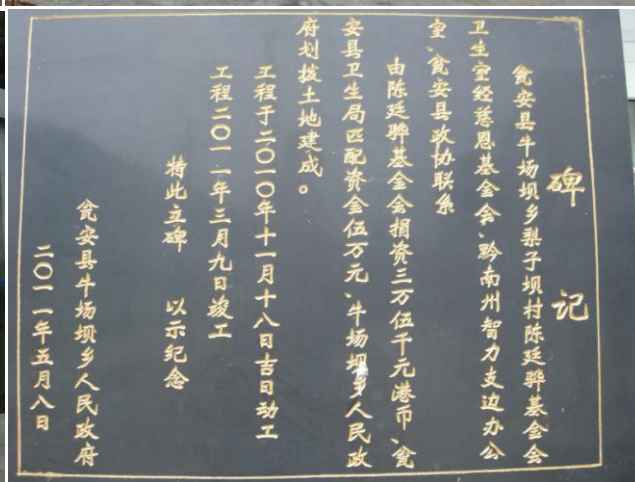 碑记
瓮安县牛场坝乡梨子坝村陈廷骅基金会
卫生室经慈恩基金会、黔南州智力支边办公
室、瓮安县政协联系
由陈廷骅基金会捐资三万伍千元港币、瓮
安县卫生局匹配资金伍万元、牛场坝乡人民政
府划拨土地建成。
工程于二〇一〇年十一月十八日吉日动工
工程二〇一一年三月九日竣工
特此立碑 以示纪念
瓮安县牛场坝乡人民政府
二〇一一年五月八日